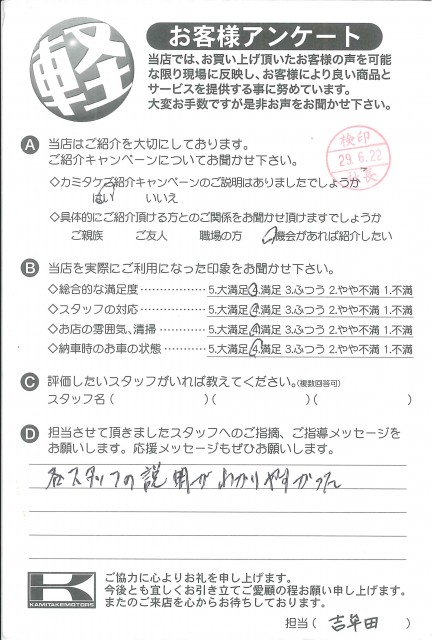 軽
お客様アンケート
当店では、お買い上げ頂いたお客様の声を可能
な限り現場に反映し、お客様により良い商品と
サービスを提供する事に努めています。
大変お手数ですが是非お声をお聞かせ下さい。
A 当店はご紹介を大切にしております。
ご紹介キャンペーンについてお聞かせ下さい。
検印
29.6.22
社長
◇カミタケご紹介キャンペーンのご説明はありましたでしょうか
はい いいえ
◇具体的にご紹介頂ける方とのご関係をお聞かせ頂けますでしょうか
ご親族 ご友人 職場の方 機会があれば紹介したい
B 当店を実際にご利用になった印象をお聞かせ下さい。
◇総合的な満足度・・・・・・・・・・・・ 5.大満足 4.満足 3.ふつう 2.やや不満 1.不満
◇スタッフの対応・・・・・・・・・・・・ 5.大満足 4.満足 3.ふつう 2.やや不満 1.不満
◇お店の雰囲気、清掃・・・・・・・・ 5.大満足 4.満足 3.ふつう 2.やや不満 1.不満
◇納車時のお車の状態・・・・・・・・ 5.大満足 4.満足 3.ふつう 2.やや不満 1.不満
C 評価したいスタッフがいれば教えてください。(複数回答可)
スタッフ名( )( )( )
D 担当させて頂きましたスタッフへのご指摘、ご指導メッセージを
お願いします。応援メッセージもぜひお願いします。
各スタッフの説明がわかりやすかった
K
KAMITAKEMOTORS
ご協力に心よりお礼を申し上げます。
今後とも宜しくお引き立てご愛顧の程お願い申し上げます。
またのご来店を心からお待ちしております。
担当( 吉早田 )